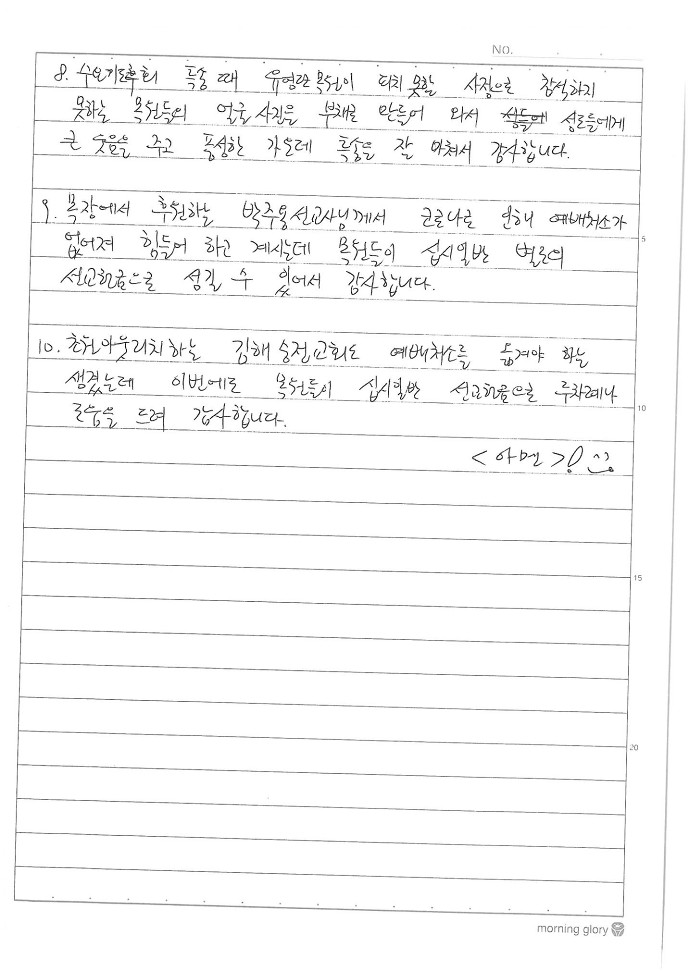 NO.
8. 수요기도후회 특송 때 유영란목원이 피치 못할 사정으로 참석하지
못하는 목원들의 얼굴 사진을 부채로 만들어 와서 성도들에게
큰 웃음을 주고 풍성한 가운데 특송을 잘 마쳐서 감사합니다.
9. 목장에서 후원하는 박주용선교사님께서 코로나로 인해 예배처소가
없어져 힘들어 하고 계시는데 목원들이 십시일반 별도의
선교헌금으로 섬길 수 있어서 감사합니다.
5
10. 초원아웃리치하는 김해 승전교회도 예배처소를 옮겨야 하는
생겼는데 이번에도 목원들이 십시일반 선교헌금으로 두차례나
도움을 드려 감사합니다.
10
<아멘>!
15
20
morning glory